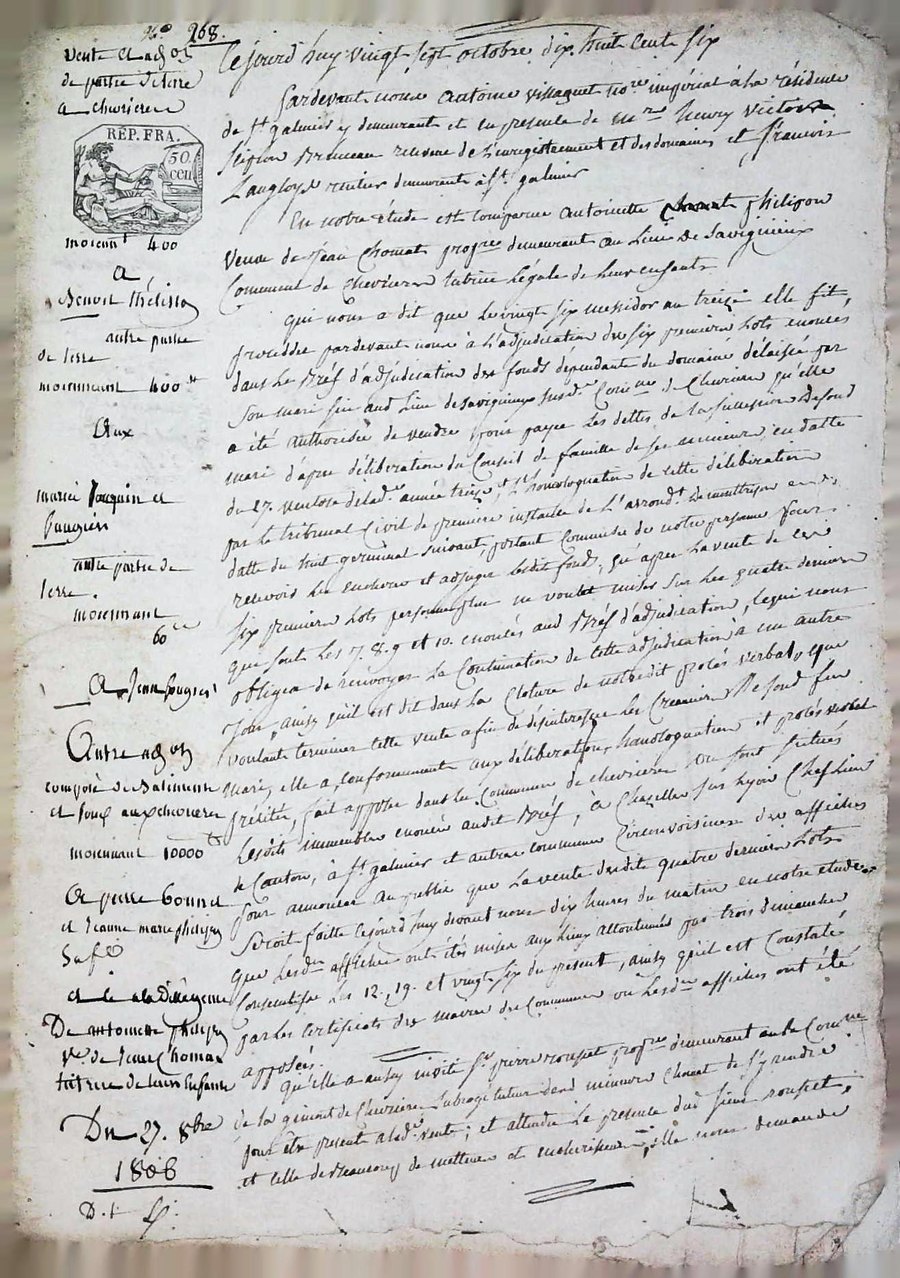 No 268.
Vente et adjon
de partie de terre
a chevrieres
REP. FRA.
50
cen
moiennt 400
A
Benoit
autre partie
de terre
moiennant 400
Aux
mariés et
autre partie de
terre
moiennant
60
A Jean
Autre adjon
composé de Batiments
et fonds aux chevrieres
moiennant 10000
A pierre Bonnet
et Jeanne marie philipon
Sa fe
et ce a la Diligence
De antoinette philipon
Ve de Jean Chomat
tutrice de leurs Enfants
Du 27. 8bre
1806
D. t.
Cejourd'huy vingt sept octobre dix huit cent six
Pardevant nous Antoine notre impérial à la résidence
de St galmier y demeurant et en presence de mrs henry victor
receveur de l'enregistrement et des domaines et francois
Langlois rentier demeurants à St galmier
En notre étude est comparue Antoinette philipon
Veuve de Jean Chomat propre demeurant au lieu de Savignieux
Commune de Chevrieres tutrice légale de leurs enfants
Qui nous a dit que le vingt six messidor an treize elle fit
procéder pardevant nous à l'adjudication des six premiers lots enoncés
dans le Bref d'adjudication des fonds dépendants du domaine délaissé par
son mari sis aud lieu de Savignieux susde Comune de Chevrieres qu'elle
a été authorisée de vendre pour payer les dettes de la succession dudit
mari d'après délibération du Conseil de famille de ses mineurs en datte
du 27. ventose de lade année treize, et l'homologuation de cette délibération
par le tribunal Civil de première instance de l'arrondt de montbrison en
datte du huit germinal suivant, portant Commise de notre personne pour
recevoir les encheres et adjuger ledit fond; qu'après la vente de ces
six premiers lots personne ne voulut miser sur les quatre derniers
que sont les 7. 8. 9 et 10. enoncés aud Bref d'adjudication, ce qui nous
obligea de renvoyer la Continuation de cette adjudication à un autre
jour, ainsy qu'il est dit dans la Cloture de notredit procès verbal, que
voulant terminer cette vente afin de désintéresser les Creanciers de sond feu
mari, elle a, conformement aux délibération, homologuation et procès verbal
précités, fait apposer dans la Commune de chevrieres ou sont situés
lesdits immeubles enoncés audit Bref, à Chazelles sur lyon Chef lieu
de Canton, à St galmier et autres communes Circonvoisines des affiches
pour annoncer au public que la vente desdits quatre derniers lots
seroit faitte cejourd'huy devant nous dix heures du matin en notre etude,
que lesdes affiches ont étés mises aux lieux accoutumés par trois dimanches
Consecutifs les 12, 19. et vingt six du present, ainsy qu'il est Constaté
par les certificats des maires des Communes ou lesdes affiches ont été
apposées.
qu'elle a aussy invité Sr pierre rousset propre demeurant au lieu
de la gimont de Chevrieres subrogé tuteur desd mineurs Chomat de s'y rendre
pour être présent à lade vente; et attendu la presence dud sieur rousset,
et celle de Beaucoup de metteurs et encherisseurs, elle nous demande